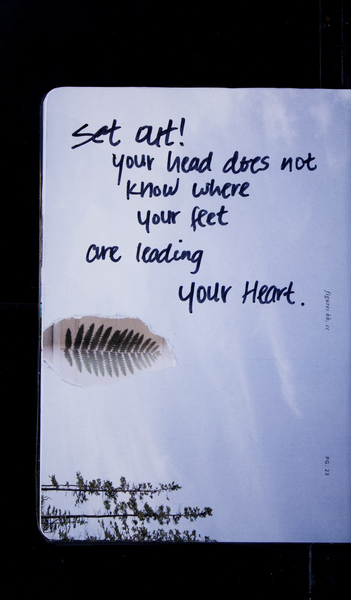 Set out!
your head does not
know where
your feet
are leading
your Heart.
PG. 23